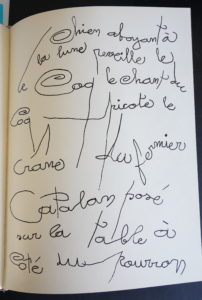 Chien aboyant à
la lune reveille le
Coq le chant du
Coq picote le
crane du fermier
Catalan posé
sur la table à
côté du pourron